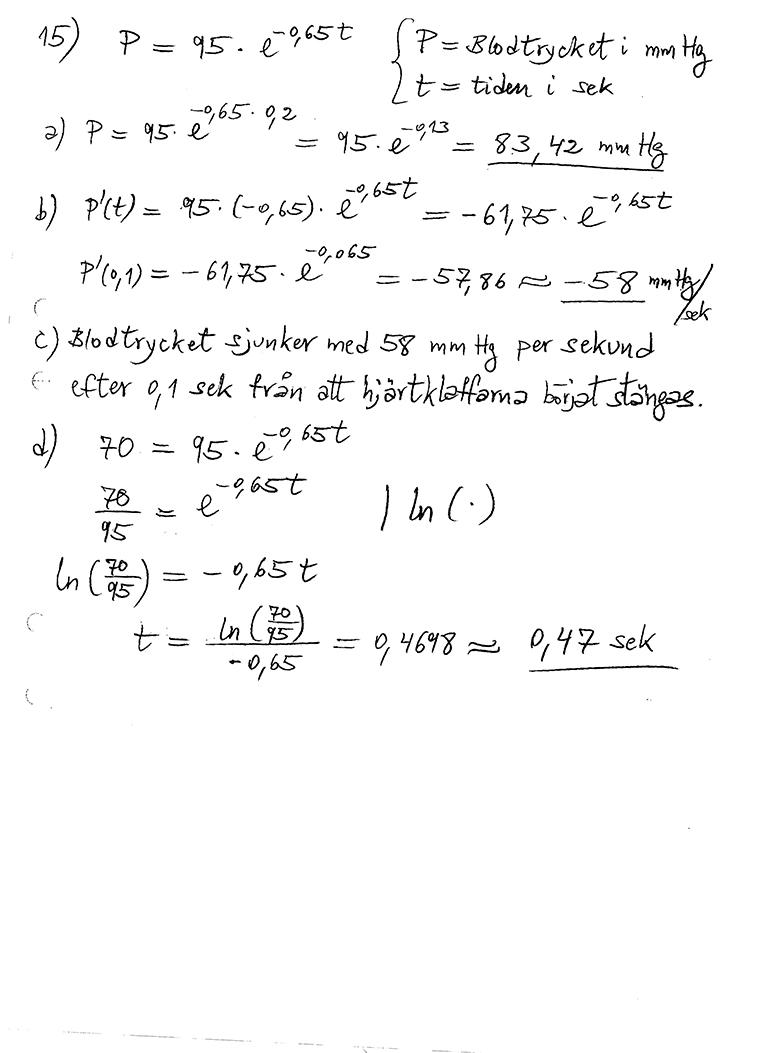 15) P = 95 · e^-0,65t { P = Blodtrycket i mm Hg
t = tiden i sek
a) P = 95 · e^-0,65 · 0,2 = 95 · e^-0,13 = 83,42 mm Hg
b) P'(t) = 95 · (-0,65) · e^-0,65t = -61,75 · e^-0,65t
P'(0,1) = -61,75 · e^-0,065 = -57,86 ≈ -58 mm Hg/sek
c) Blodtrycket sjunker med 58 mm Hg per sekund
efter 0,1 sek från att hjärtklaffarna börjat stängas.
d) 70 = 95 · e^-0,65t
70/95 = e^-0,65t | ln (·)
ln (70/95) = -0,65 t
t = ln (70/95) / -0,65 = 0,4698 ≈ 0,47 sek